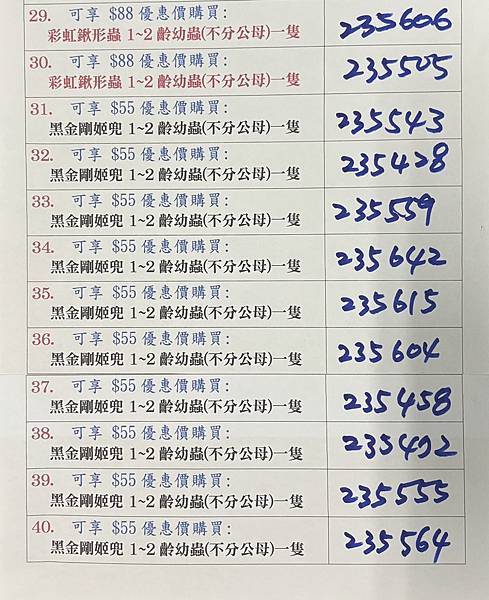 29. 可享 $88 優惠價購買:
彩虹鍬形蟲 1~2 齡幼蟲(不分公母)一隻
235606
30. 可享 $88 優惠價購買:
彩虹鍬形蟲 1~2 齡幼蟲(不分公母)一隻
235505
31. 可享 $55 優惠價購買:
黑金剛姬兜 1~2 齡幼蟲(不分公母)一隻
235543
32. 可享 $55 優惠價購買:
黑金剛姬兜 1~2 齡幼蟲(不分公母)一隻
235428
33. 可享 $55 優惠價購買:
黑金剛姬兜 1~2 齡幼蟲(不分公母)一隻
235559
34. 可享 $55 優惠價購買:
黑金剛姬兜 1~2 齡幼蟲(不分公母)一隻
235642
35. 可享 $55 優惠價購買:
黑金剛姬兜 1~2 齡幼蟲(不分公母)一隻
235615
36. 可享 $55 優惠價購買:
黑金剛姬兜 1~2 齡幼蟲(不分公母)一隻
235604
37. 可享 $55 優惠價購買:
黑金剛姬兜 1~2 齡幼蟲(不分公母)一隻
235458
38. 可享 $55 優惠價購買:
黑金剛姬兜 1~2 齡幼蟲(不分公母)一隻
235492
39. 可享 $55 優惠價購買:
黑金剛姬兜 1~2 齡幼蟲(不分公母)一隻
235555
40. 可享 $55 優惠價購買:
黑金剛姬兜 1~2 齡幼蟲(不分公母)一隻
235564